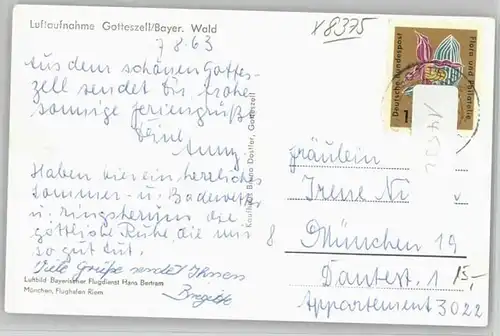 Luftaufnahme Gotteszell/Bayer. Wald
7 8.63
Aus dem schönen Gottes-
zell sendet Dir frohe
sonnige Feriengrüße
Deine
Anny
Haben hier ein herrliches
Sommer- u. Badewetter
u. ringsherum die
göttliche Ruhe, die uns
so gut tut.
Viele Grüße sendet Ihnen
Brigitte
Luftbild Bayerischer Flugdienst Hans Bertram
München, Flughafen Riem
Kaufhaus Gotteszell
X8375
Deutsche Bundespost
Flora und Philatelie
1
Fräulein
Irene
8 München 19
Dantestr. 1
15,-
Appartement 3022